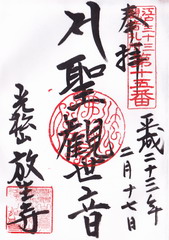 奉拝
江戸三十三所第十五番
平成二十三年
二月十七日
聖観世音
光松山
放生寺